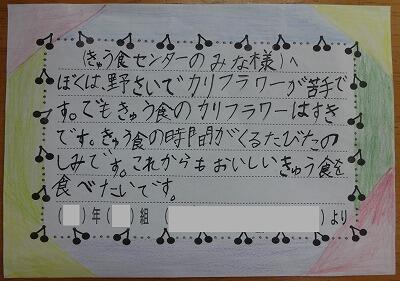 (きゅう食センターのみな様)へ
ぼくは、野さいでカリフラワーが苦手で
す。でもきゅう食のカリフラワーはすき
です。きゅう食の時間がくるたびたの
しみです。これからもおいしいきゅう食を
食べたいです。
( )年( )組 ( )より